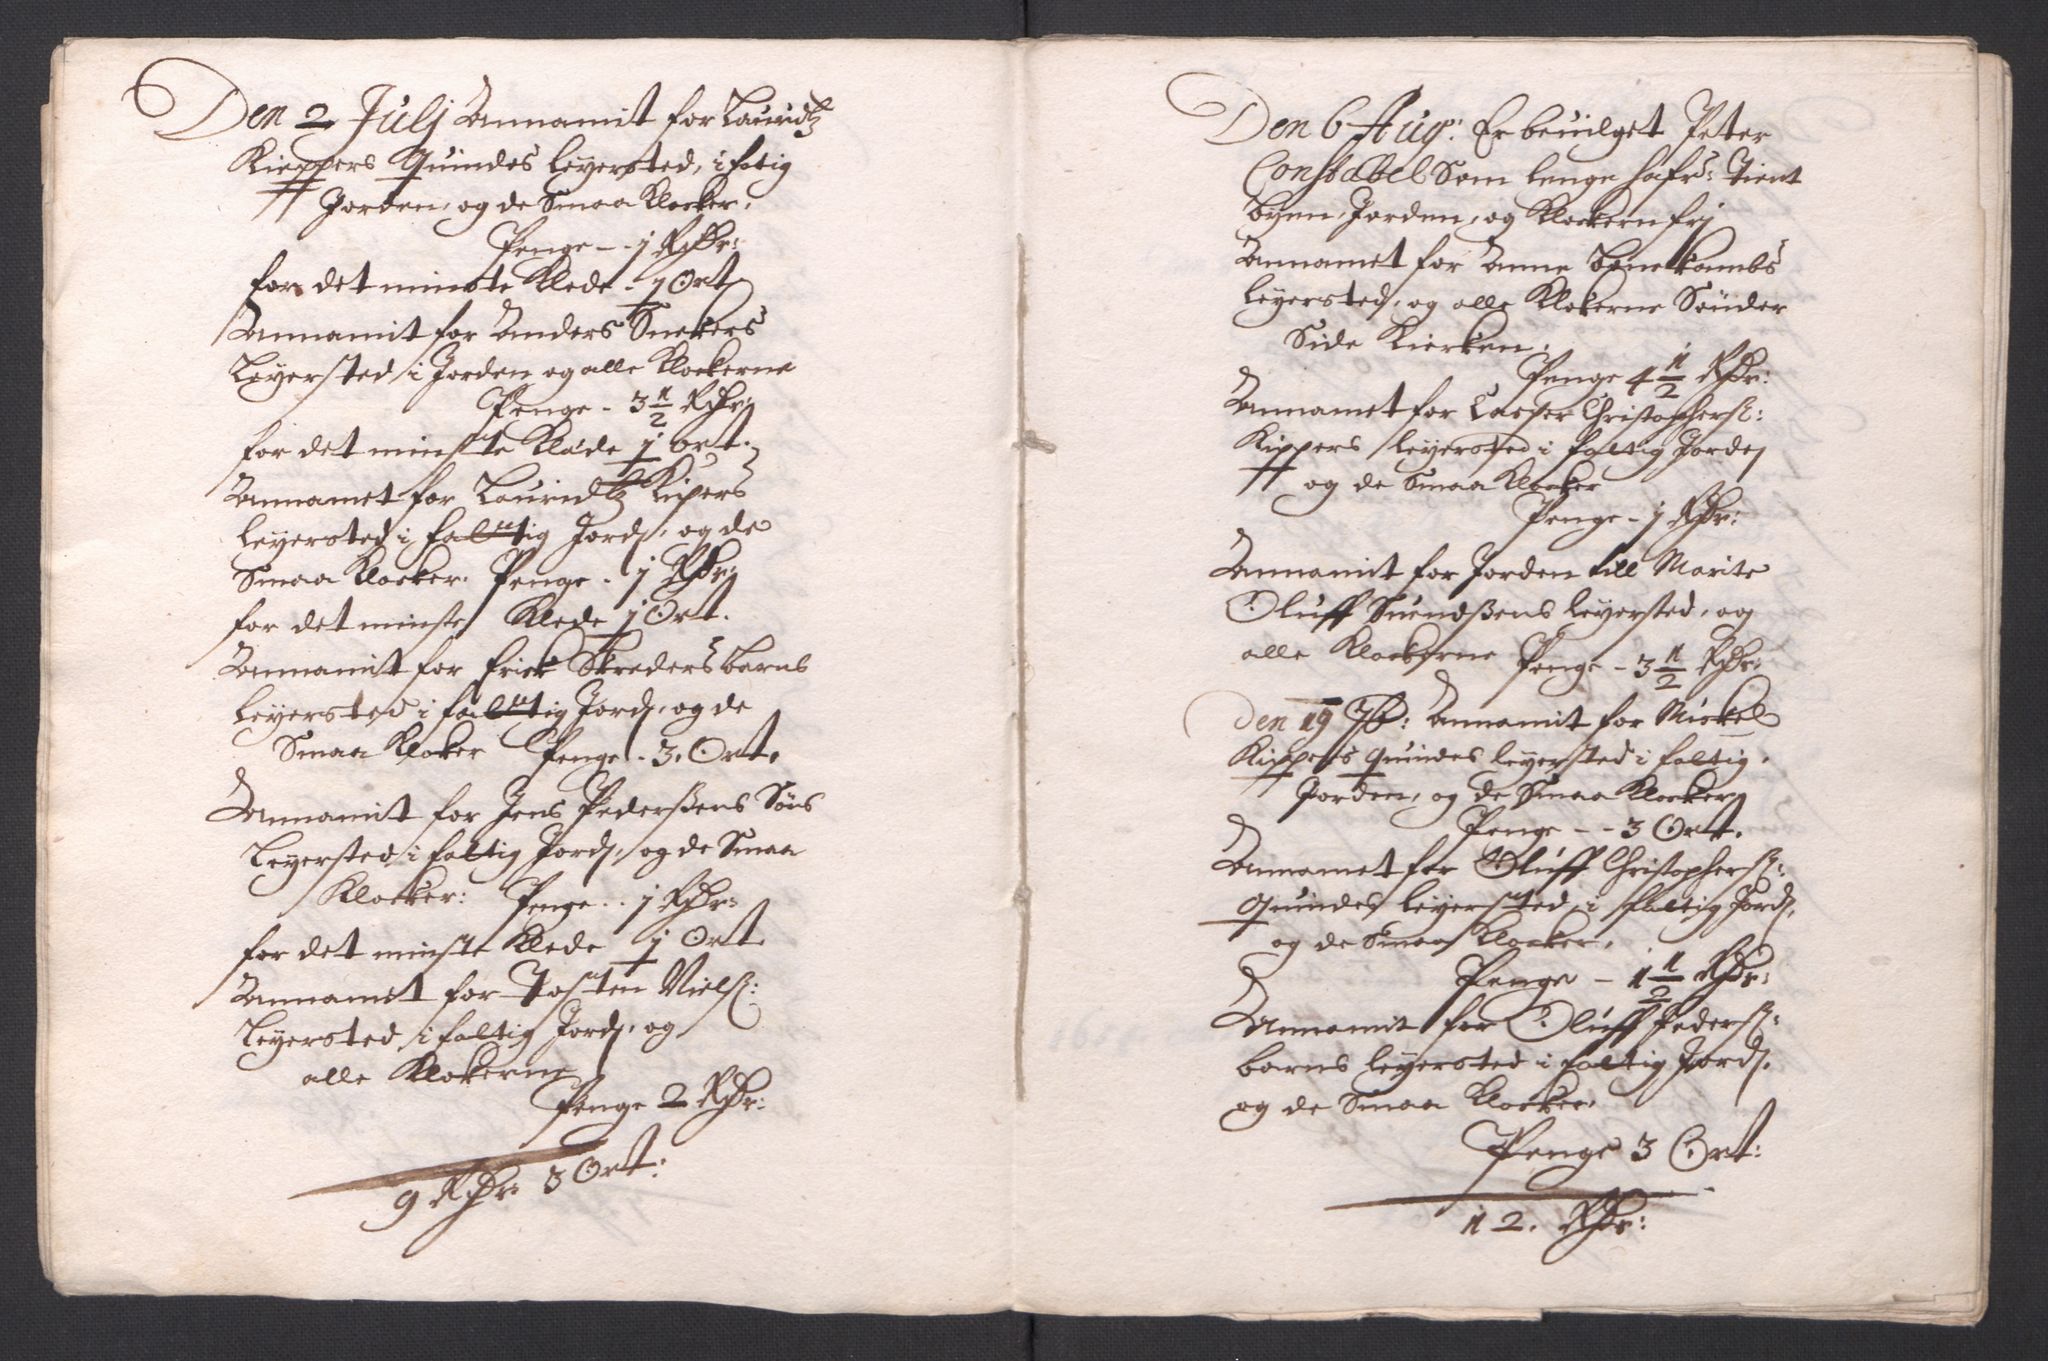 Den 2 Julj Annamit for Lauridtz
Kieppers Quindes leyersted, i fatig
Jorden, og de Smaa Klocker,
Penge - - j Rdr:
for det minste Klede - j Ort
Annamit for Anders Snekers
Leyersted i Jorden og alle Klockerne
Penge - 3 1/2 Rdr:
for det minste Klæde j ort.
Annamet for Lauridtz Kipers
leyersted i fattig Jord, og de
Smaa Klocker. Penge - j Rdr:
for det minste Klede j Ort.
Annamit for Erick Skreders barns
leyersted i fattig Jord, og de
Smaa Klocker Penge - 3. Ort.
Annamit for Jens Pederßens Søns
Leyersted i fattig Jord, og de Smaa
Klocker: Penge - - j Rdr:
for det minste Klede j Ort.
Annamet for Tosten Niels:
Leyersted i fattig Jord, og
alle Klokerne
Penge 2 Rdr:
9 Rdr: 3 Ort:
Den 6 Aug: Er beuilget Peter
Constabel Som lenge hafr: Tient
byen, Jorden, og Klockern frj
Annamet for Anne benekambs
leyersted, og alle Klokerne Sønder
Side Kierken,
Penge 4 1/2 Rdr:
Annamet for Lasser Christophers:
Kippers leyersted i fattig Jorde
og de Smaa Klocker
Penge - j Rdr:
Annamit for Jorden till Marite
Oluff Suendßens leyersted, og
alle Klockerne Penge - 3 1/2 Rdr:
Den 19 7b: Annamit for Mickel
Kippers quindes leyersted i fattig
Jorden, og de Smaa Klocker
Penge - - 3 Ort.
Annamet for Oluff Christophers:
quindes leyersted i fattig Jord,
og de Smaa Klocker,
Penge - 1 1/2 Rdr:
Annamit for Oluff Peders:
barns leyersted i fattig Jord,
og de Smaa Klocker,
Penge 3 Ort:
12. Rdr: